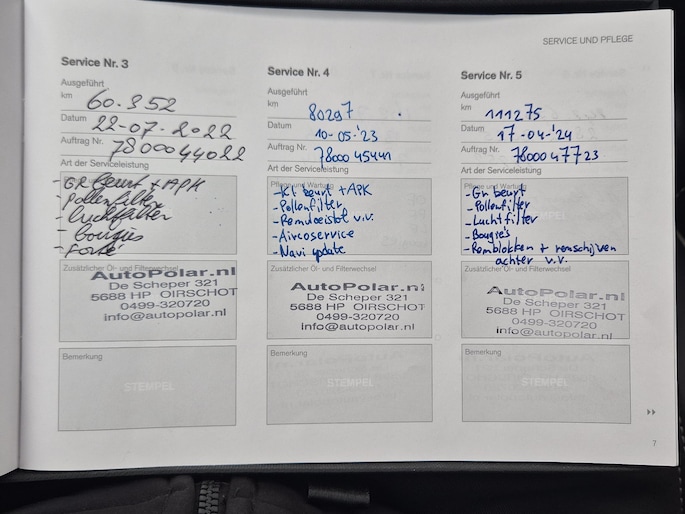 SERVICE UND PFLEGE
Service Nr. 3
Ausgeführt
km 60.352
Datum 22-07-2022
Auftrag Nr. 7800044022
Art der Serviceleistung
- GR Beurt + APK
- Pollenfilter
- Luchtfilter
- Bougies
- Forté
Zusätzlicher Öl- und Filterwechsel
AutoPolar.nl
De Scheper 321
5688 HP OIRSCHOT
0499-320720
info@autopolar.nl
Bemerkung
STEMPEL
Service Nr. 4
Ausgeführt
km 80297
Datum 10-05-'23
Auftrag Nr. 7800045441
Art der Serviceleistung
Pflege und Wartung
- Kt beurt + APK
- Pollenfilter
- Remvloeistof v.v.
- Aircoservice
- Navi update
Zusätzlicher Öl- und Filterwechsel
AutoPolar.nl
De Scheper 321
5688 HP OIRSCHOT
0499-320720
info@autopolar.nl
Bemerkung
STEMPEL
Service Nr. 5
Ausgeführt
km 111275
Datum 17-04-'24
Auftrag Nr. 7800047723
Art der Serviceleistung
Pflege und Wartung
- Gr beurt
- Pollenfilter
- Luchtfilter
- Bougie's
- Remblokken + remschijven
achter v.v.
STEMPEL
Zusätzlicher Öl- und Filterwechsel
AutoPolar.nl
De Scheper 321
5688 HP OIRSCHOT
0499-320720
info@autopolar.nl
Bemerkung
STEMPEL
7